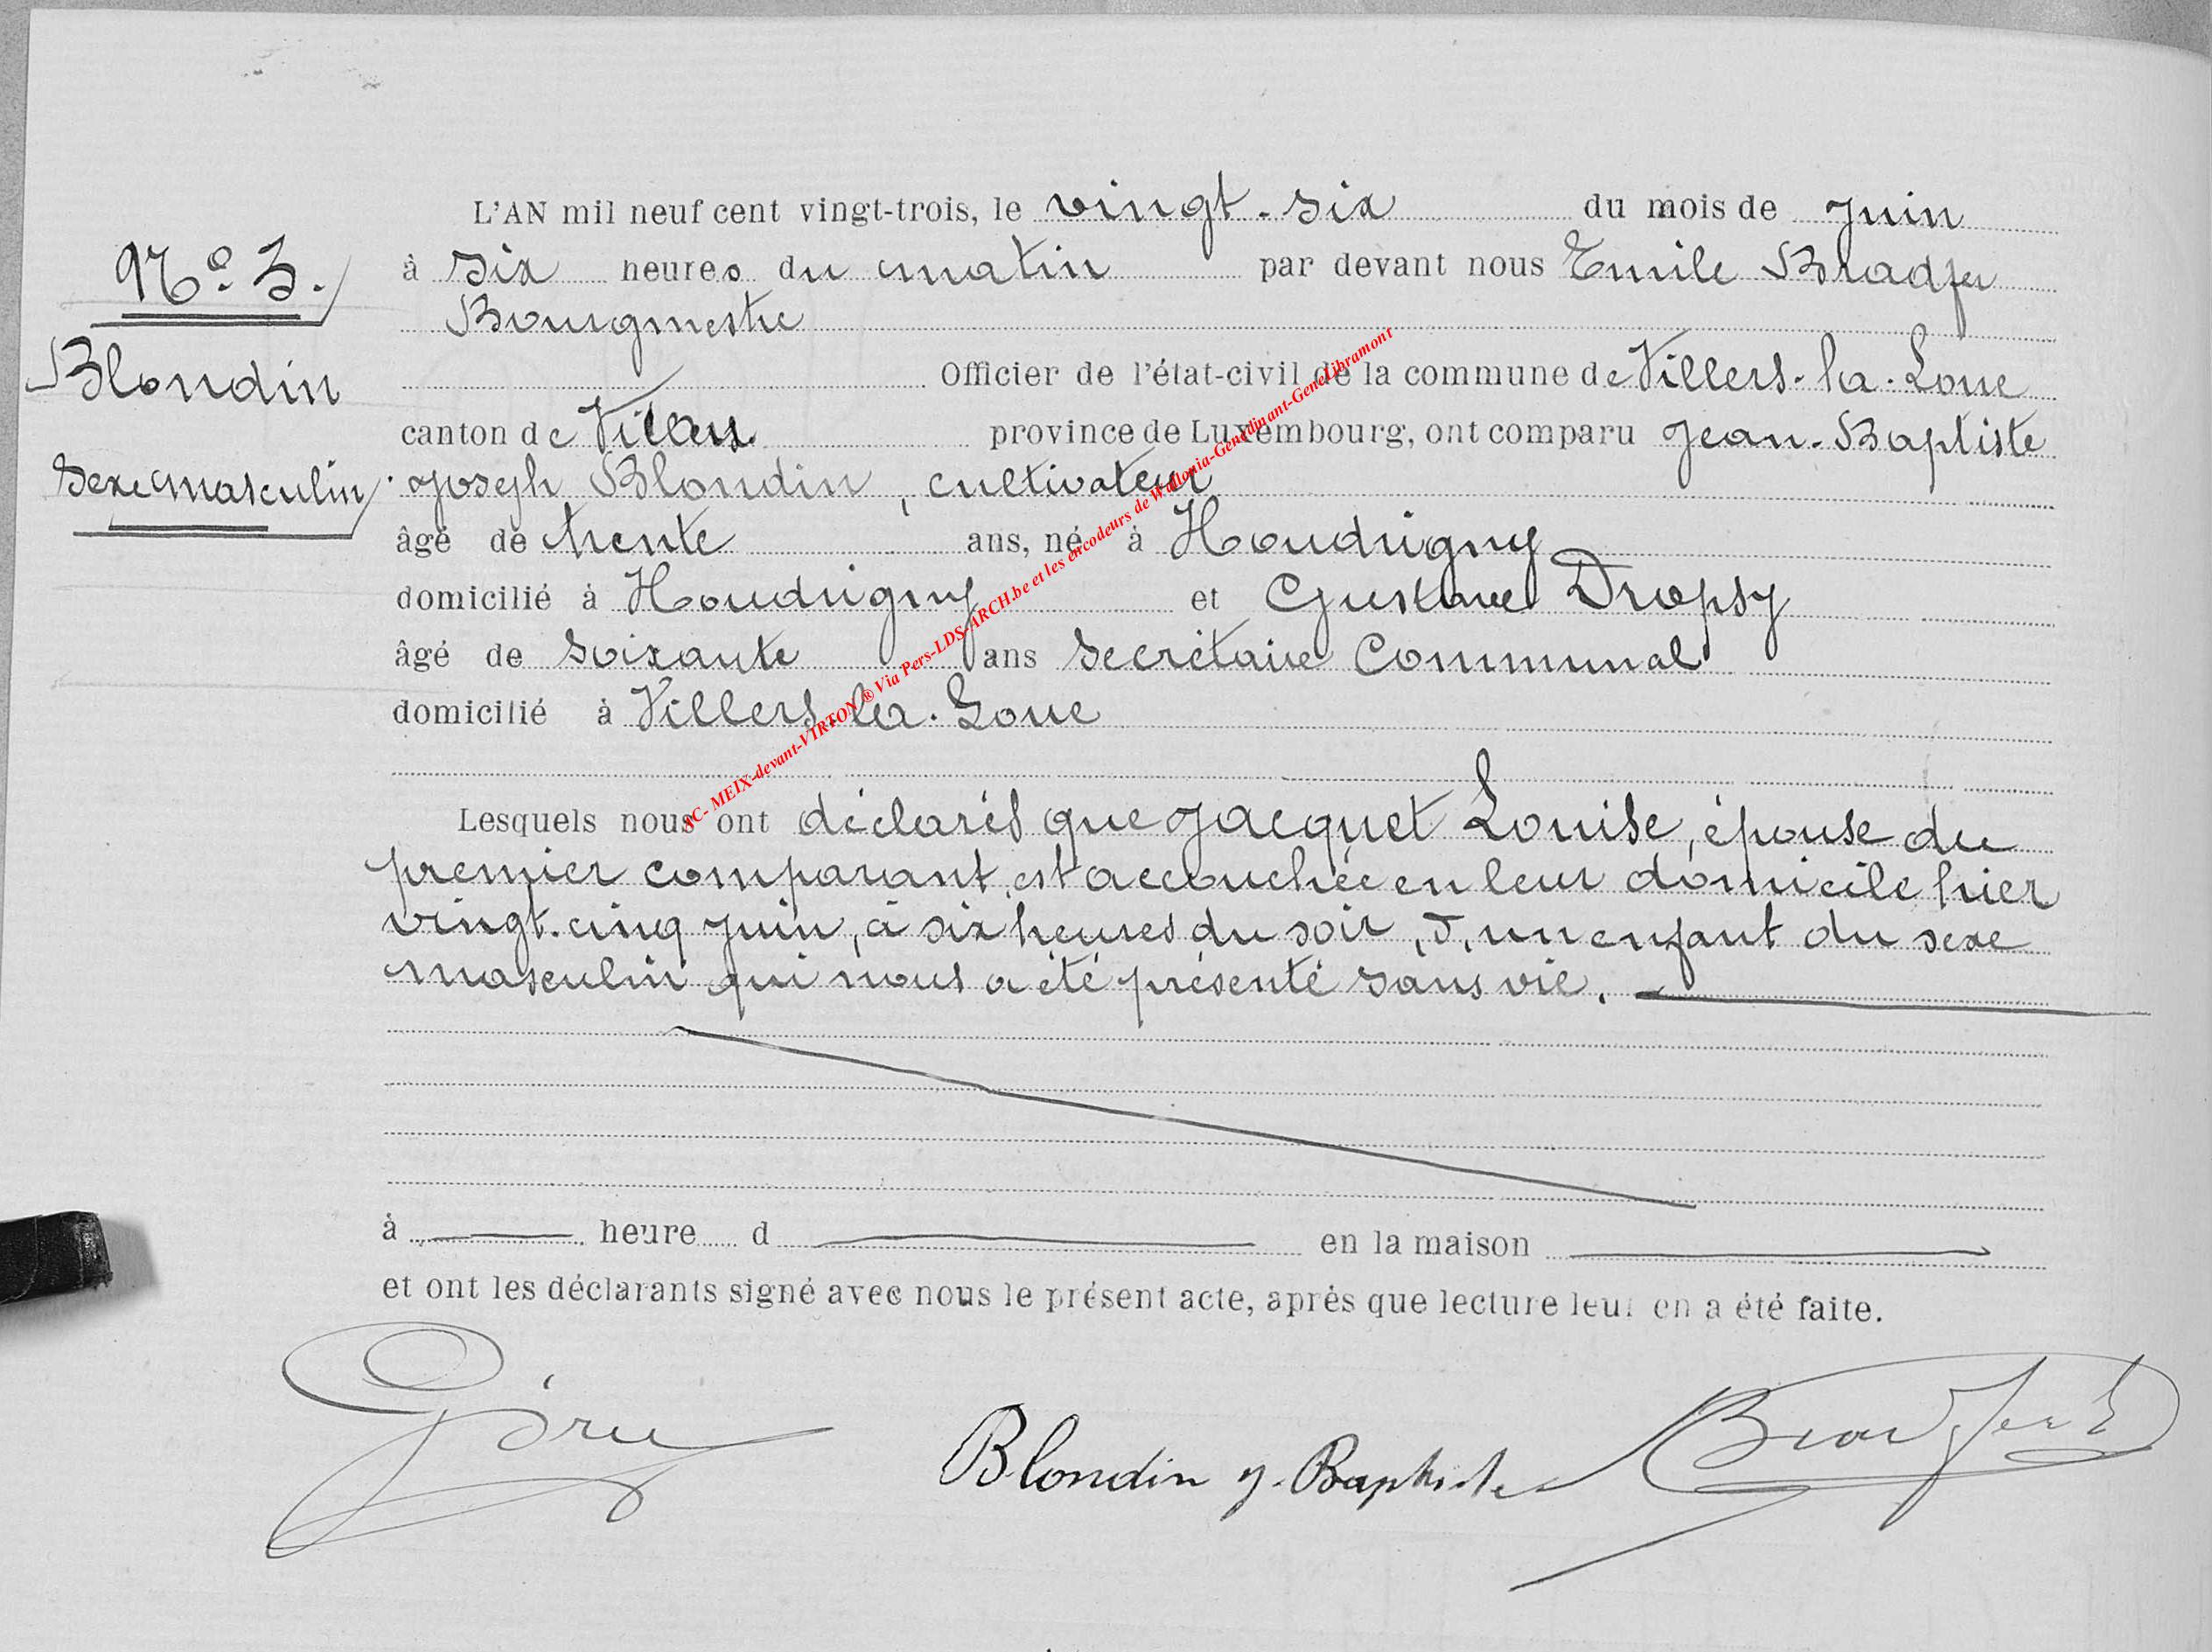 L'AN mil neuf cent vingt-trois, le vingt-six du mois de Juin
N° 3.
à six heures du matin par devant nous Emile Bradfer
Bourgmestre
Blondin
Officier de l'état-civil de la commune de Villers-la-Loue
canton de province de Luxembourg, ont comparu Jean-Baptiste
Sexe masculin
Joseph Blondin, cultivateur
âgé de trente ans, né à Houdrigny
domicilié à Houdrigny et Gustave Dropsy
âgé de soixante ans Secrétaire Communal
domicilié à Villers-la-Loue
Lesquels nous ont déclarés que Jacquet Louise, épouse du
premier comparant, est accouchée en leur domicile hier
vingt-cinq Juin, à six heures du soir, d'un enfant du sexe
masculin qui nous a été présenté sans vie.
à heure d en la maison
et ont les déclarants signé avec nous le présent acte, après que lecture leur en a été faite.
Blondin J. Baptiste
Bradfer E
SC- MEIX-devant-VIRTON ® Via Pers-LDS-ARCH.be et les encodeurs de Wallonia-Genedinant-GeneLibramont